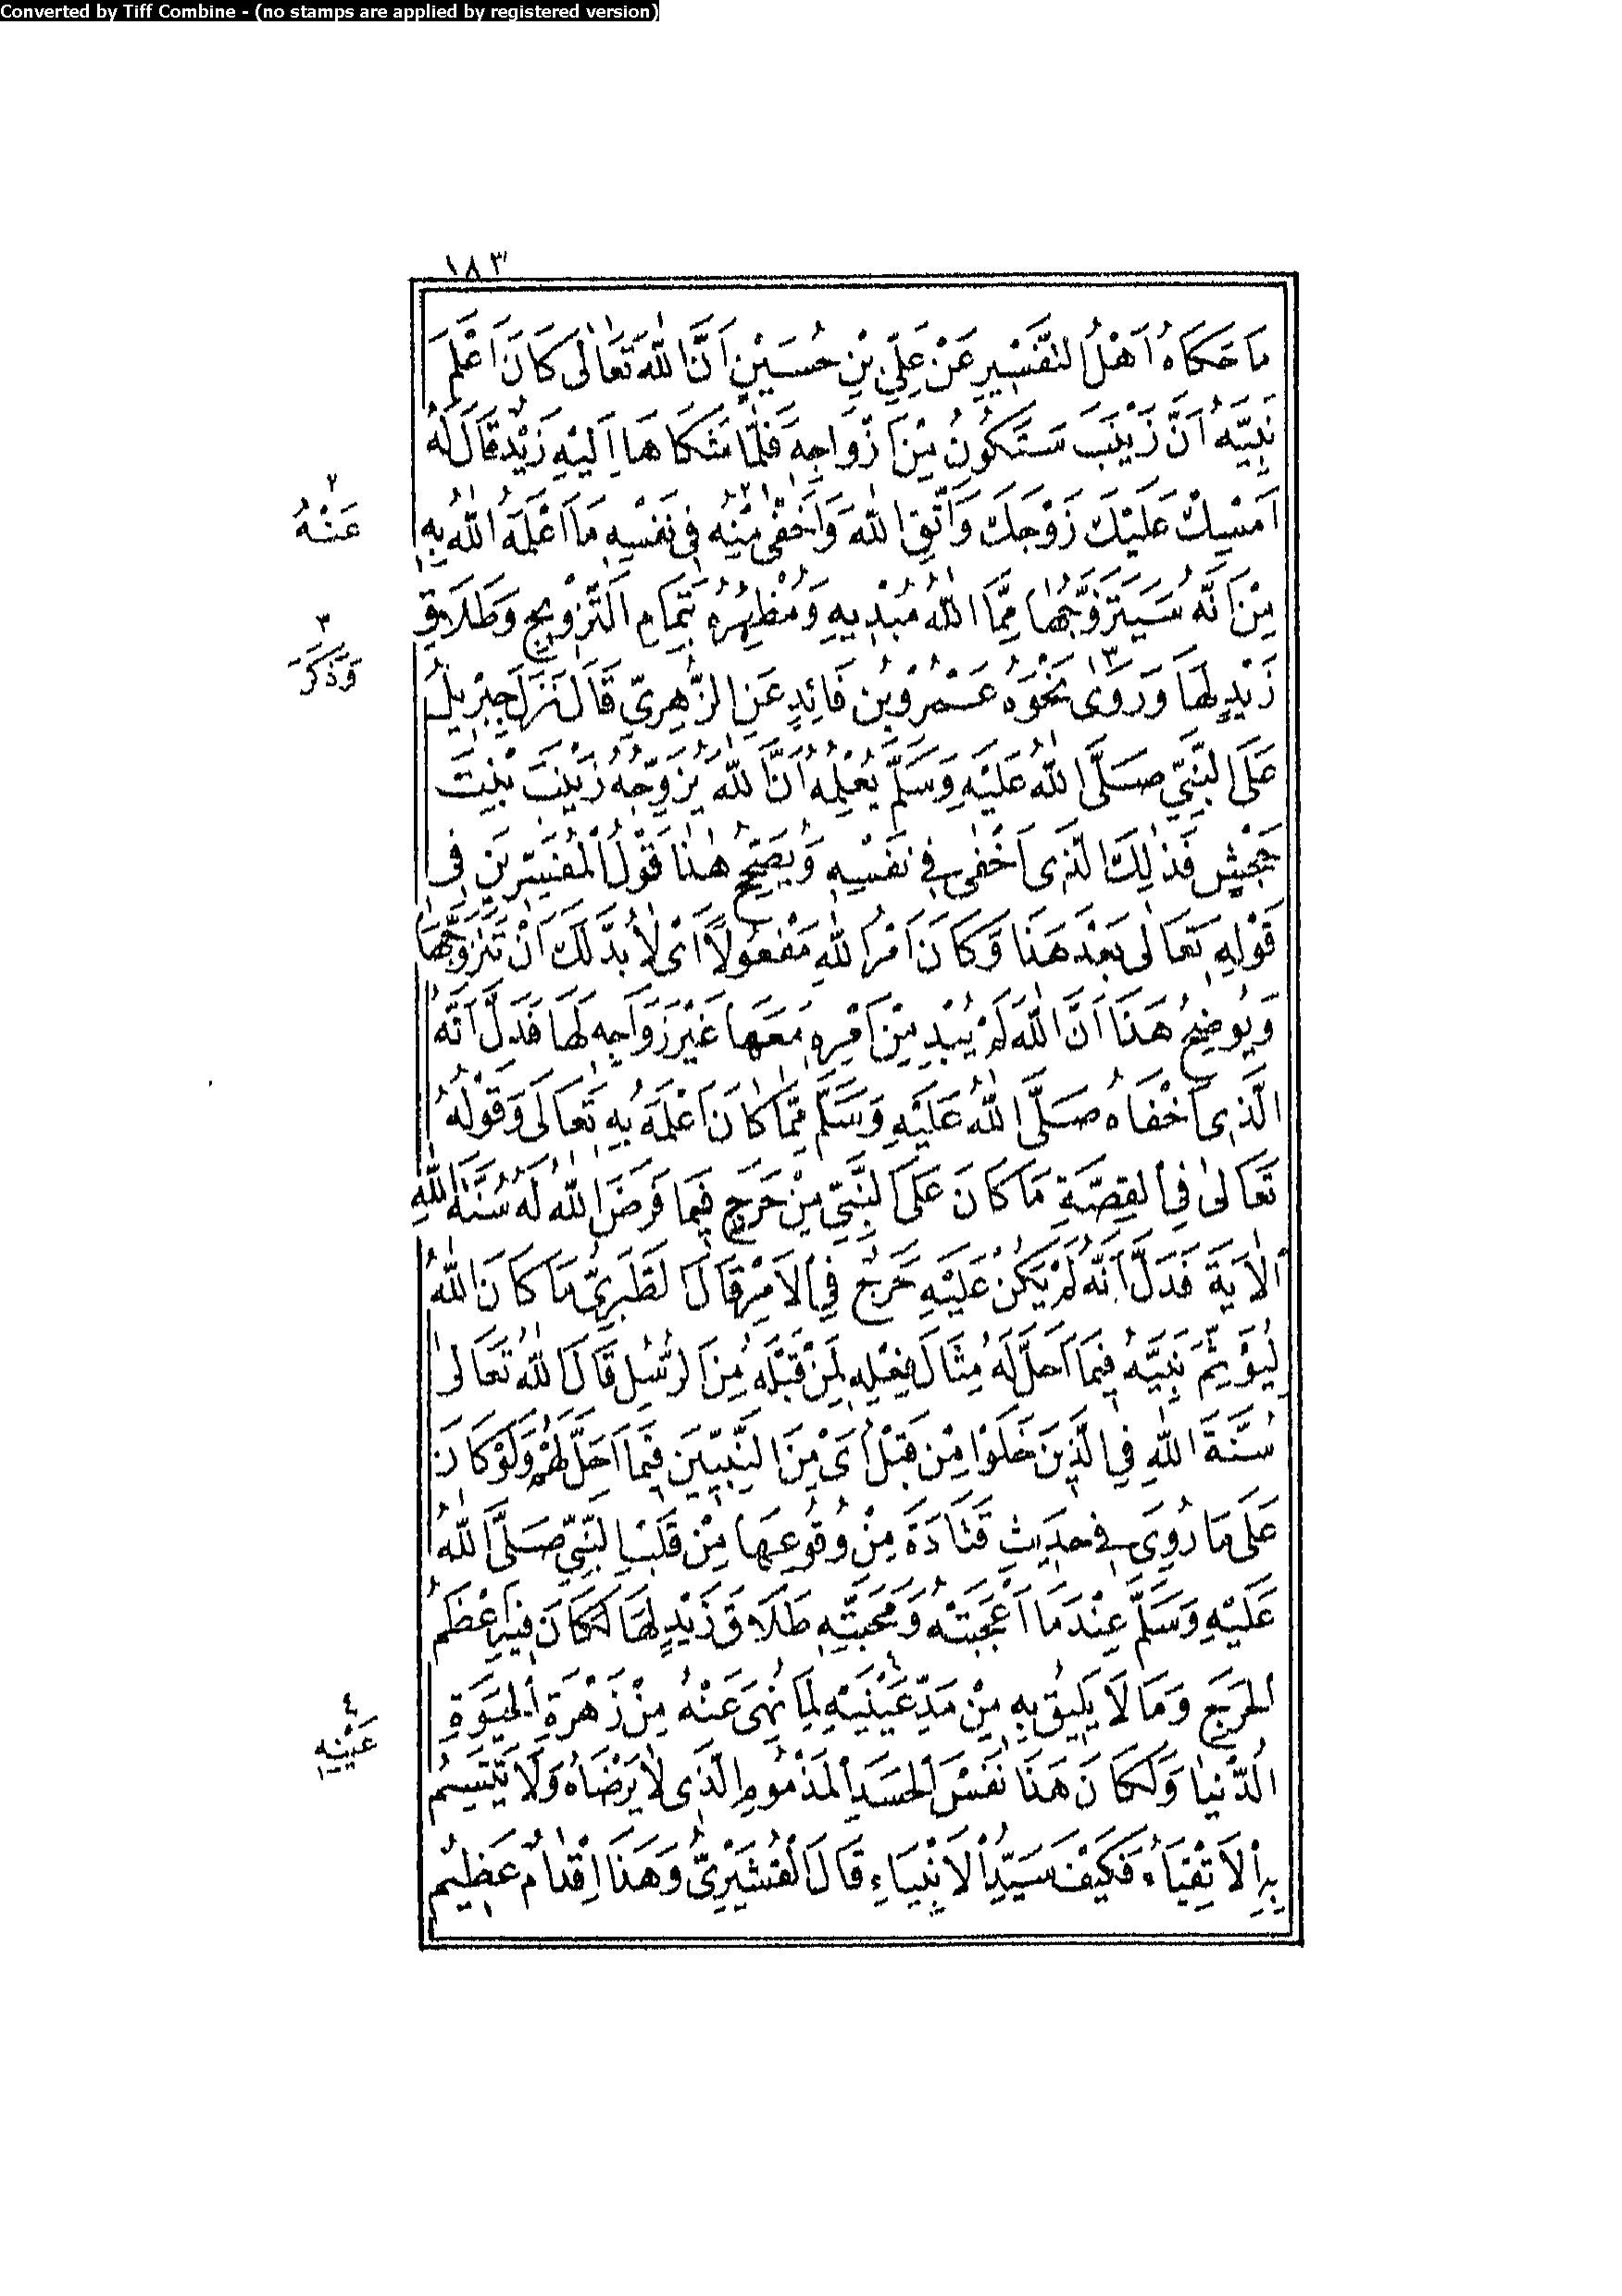 Converted by Tiff Combine - (no stamps are applied by registered version)
١٨٣
مَا حَكَاهُ اَهْلُ التَّفْسِيرِ عَنْ عَلِيِّ بْنِ حُسَيْنٍ اَنَّ اللّٰهَ تَعَالٰى كَانَ اَعْلَمَ
نَبِيَّهُ اَنَّ زَيْنَبَ سَتَكُونُ مِنْ اَزْوَاجِهِ فَلَمَّا شَكَاهَا اِلَيْهِ زَيْدٌ قَالَ لَهُ
اَمْسِكْ عَلَيْكَ زَوْجَكَ وَاتَّقِ اللّٰهَ وَاَخْفٰى مِنْهُ ٢ فِى نَفْسِهِ مَا اَعْلَمَهُ اللّٰهُ بِهِ
٢
عَنْهُ
مِنْ اَنَّهُ سَيَتَزَوَّجُهَا مِمَّا اللّٰهُ مُبْدِيهِ وَمُظْهِرُهُ بِتَمَامِ التَّزْوِيجِ وَطَلَاقِ
٣
وَذَكَرَ
زَيْدٍ لَهَا وَرَوٰى ٣ نَحْوَهُ عَمْرُو بْنُ فَائِدٍ عَنِ الزُّهْرِيِّ قَالَ نَزَلَ جِبْرِيلُ
عَلَى النَّبِيِّ صَلَّى اللّٰهُ عَلَيْهِ وَسَلَّمَ يُعْلِمُهُ اَنَّ اللّٰهَ يُزَوِّجُهُ زَيْنَبَ بْنِتَ
جَحْشٍ فَذٰلِكَ الَّذِى اَخْفٰى فِى نَفْسِهِ وَيُصَحِّحُ هٰذَا قَوْلُ الْمُفَسِّرِينَ فِى
قَوْلِهِ تَعَالٰى بَعْدَ هَذَا وَكَانَ اَمْرُ اللّٰهِ مَفْعُولًا اَىْ لَا بُدَّ لَكَ اَنْ تَتَزَوَّجَهَا
وَيُوضِحُ هَذَا اَنَّ اللّٰهَ لَمْ يُبْدِ مِنْ اَمْرِهِ مَعَهَا غَيْرَ زَوَاجِهِ لَهَا فَدَلَّ اَنَّهُ
الَّذِى اَخْفَاهُ صَلَّى اللّٰهُ عَلَيْهِ وَسَلَّمَ مِمَّا كَانَ اَعْلَمَهُ بِهِ تَعَالَى وَقَوْلُهُ
تَعَالىٰ فِى الْقِصَّةِ مَا كَانَ عَلَى النَّبِيِّ مِنْ حَرَجٍ فِيمَا فَرَضَ اللّٰهُ لَهُ سُنَّةَ اللّٰهِ
الْاٰيَةَ فَدَلَّ اَنَّهُ لَمْ يَكُنْ عَلَيْهِ حَرَجٌ فِى الْاَمْرِ قَالَ الطَّبَرِىُّ مَا كَانَ اللّٰهُ
لِيُؤَثِّمَ نَبِيَّهُ فِيمَا اَحَلَّ لَهُ مِثَالَ فِعْلِهِ لِمَنْ قَبْلَهُ مِنَ الرُّسُلِ قَالَ اللّٰهُ تَعَالٰى
سُنَّةَ اللّٰهِ فِى الَّذِينَ خَلَوْا مِنْ قَبْلُ اَىْ مِنَ النَّبِيِّينَ فِيمَا اَحَلَّ لَهُمْ وَلَوْ كَانَ
عَلَى مَا رُوِىَ فِى حَدِيثِ قَتَادَةَ مِنْ وُقُوعِهَا مِنْ قَلْبِ النَّبِيِّ صَلَّى اللّٰهُ
عَلَيْهِ وَسَلَّمَ عِنْدَ مَا اَعْجَبَتْهُ وَمَحَبَّتِهِ طَلَاقَ زَيْدٍ لَهَا لَكَانَ فِيهِ اَعْظَمُ
الْحَرَجِ وَمَا لَا يَلِيقُ بِهِ مِنْ مَدِّ عَيْنَيْهِ ٤ لِمَا نُهِىَ عَنْهُ مِنْ زَهْرَةِ الْحَيٰوةِ
٤
عَيْنِهِ
الدُّنْيَا وَلَكَانَ هَذَا نَفْسَ الْحَسَدِ الْمَذْمُومِ الَّذِى لَا يَرْضَاهُ وَلَا يَتَّسِمُ
بِهِ الْاَتْقِيَاءُ فَكَيْفَ سَيِّدُ الْاَنْبِيَاءِ قَالَ الْقُشَيْرِىُّ وَهَذَا اِقْدَامٌ عَظِيمٌ